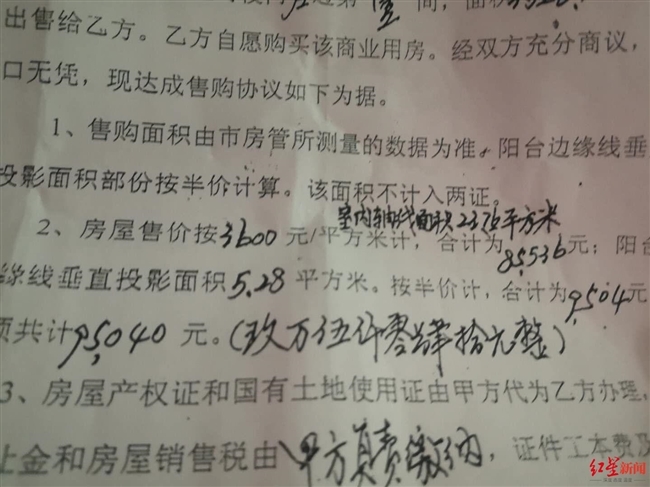 间，面积
出售给乙方。乙方自愿购买该商业用房。经双方充分商议，
口无凭，现达成售购协议如下为据。
1、售购面积由市房管所测量的数据为准。阳台边缘线垂
投影面积部份按半价计算。该面积不计入两证。
室内轴线面积23.76平方米
2、房屋售价按3600元/平方米计，合计为85,536元；阳台
缘线垂直投影面积5.28平方米。按半价计，合计为9,504元
项共计95,040元。（玖万伍仟零肆拾元整）
3、房屋产权证和国有土地使用证由甲方代为乙方办理，
金和房屋销售税由甲方负责缴纳，证件工本费及
红星新闻